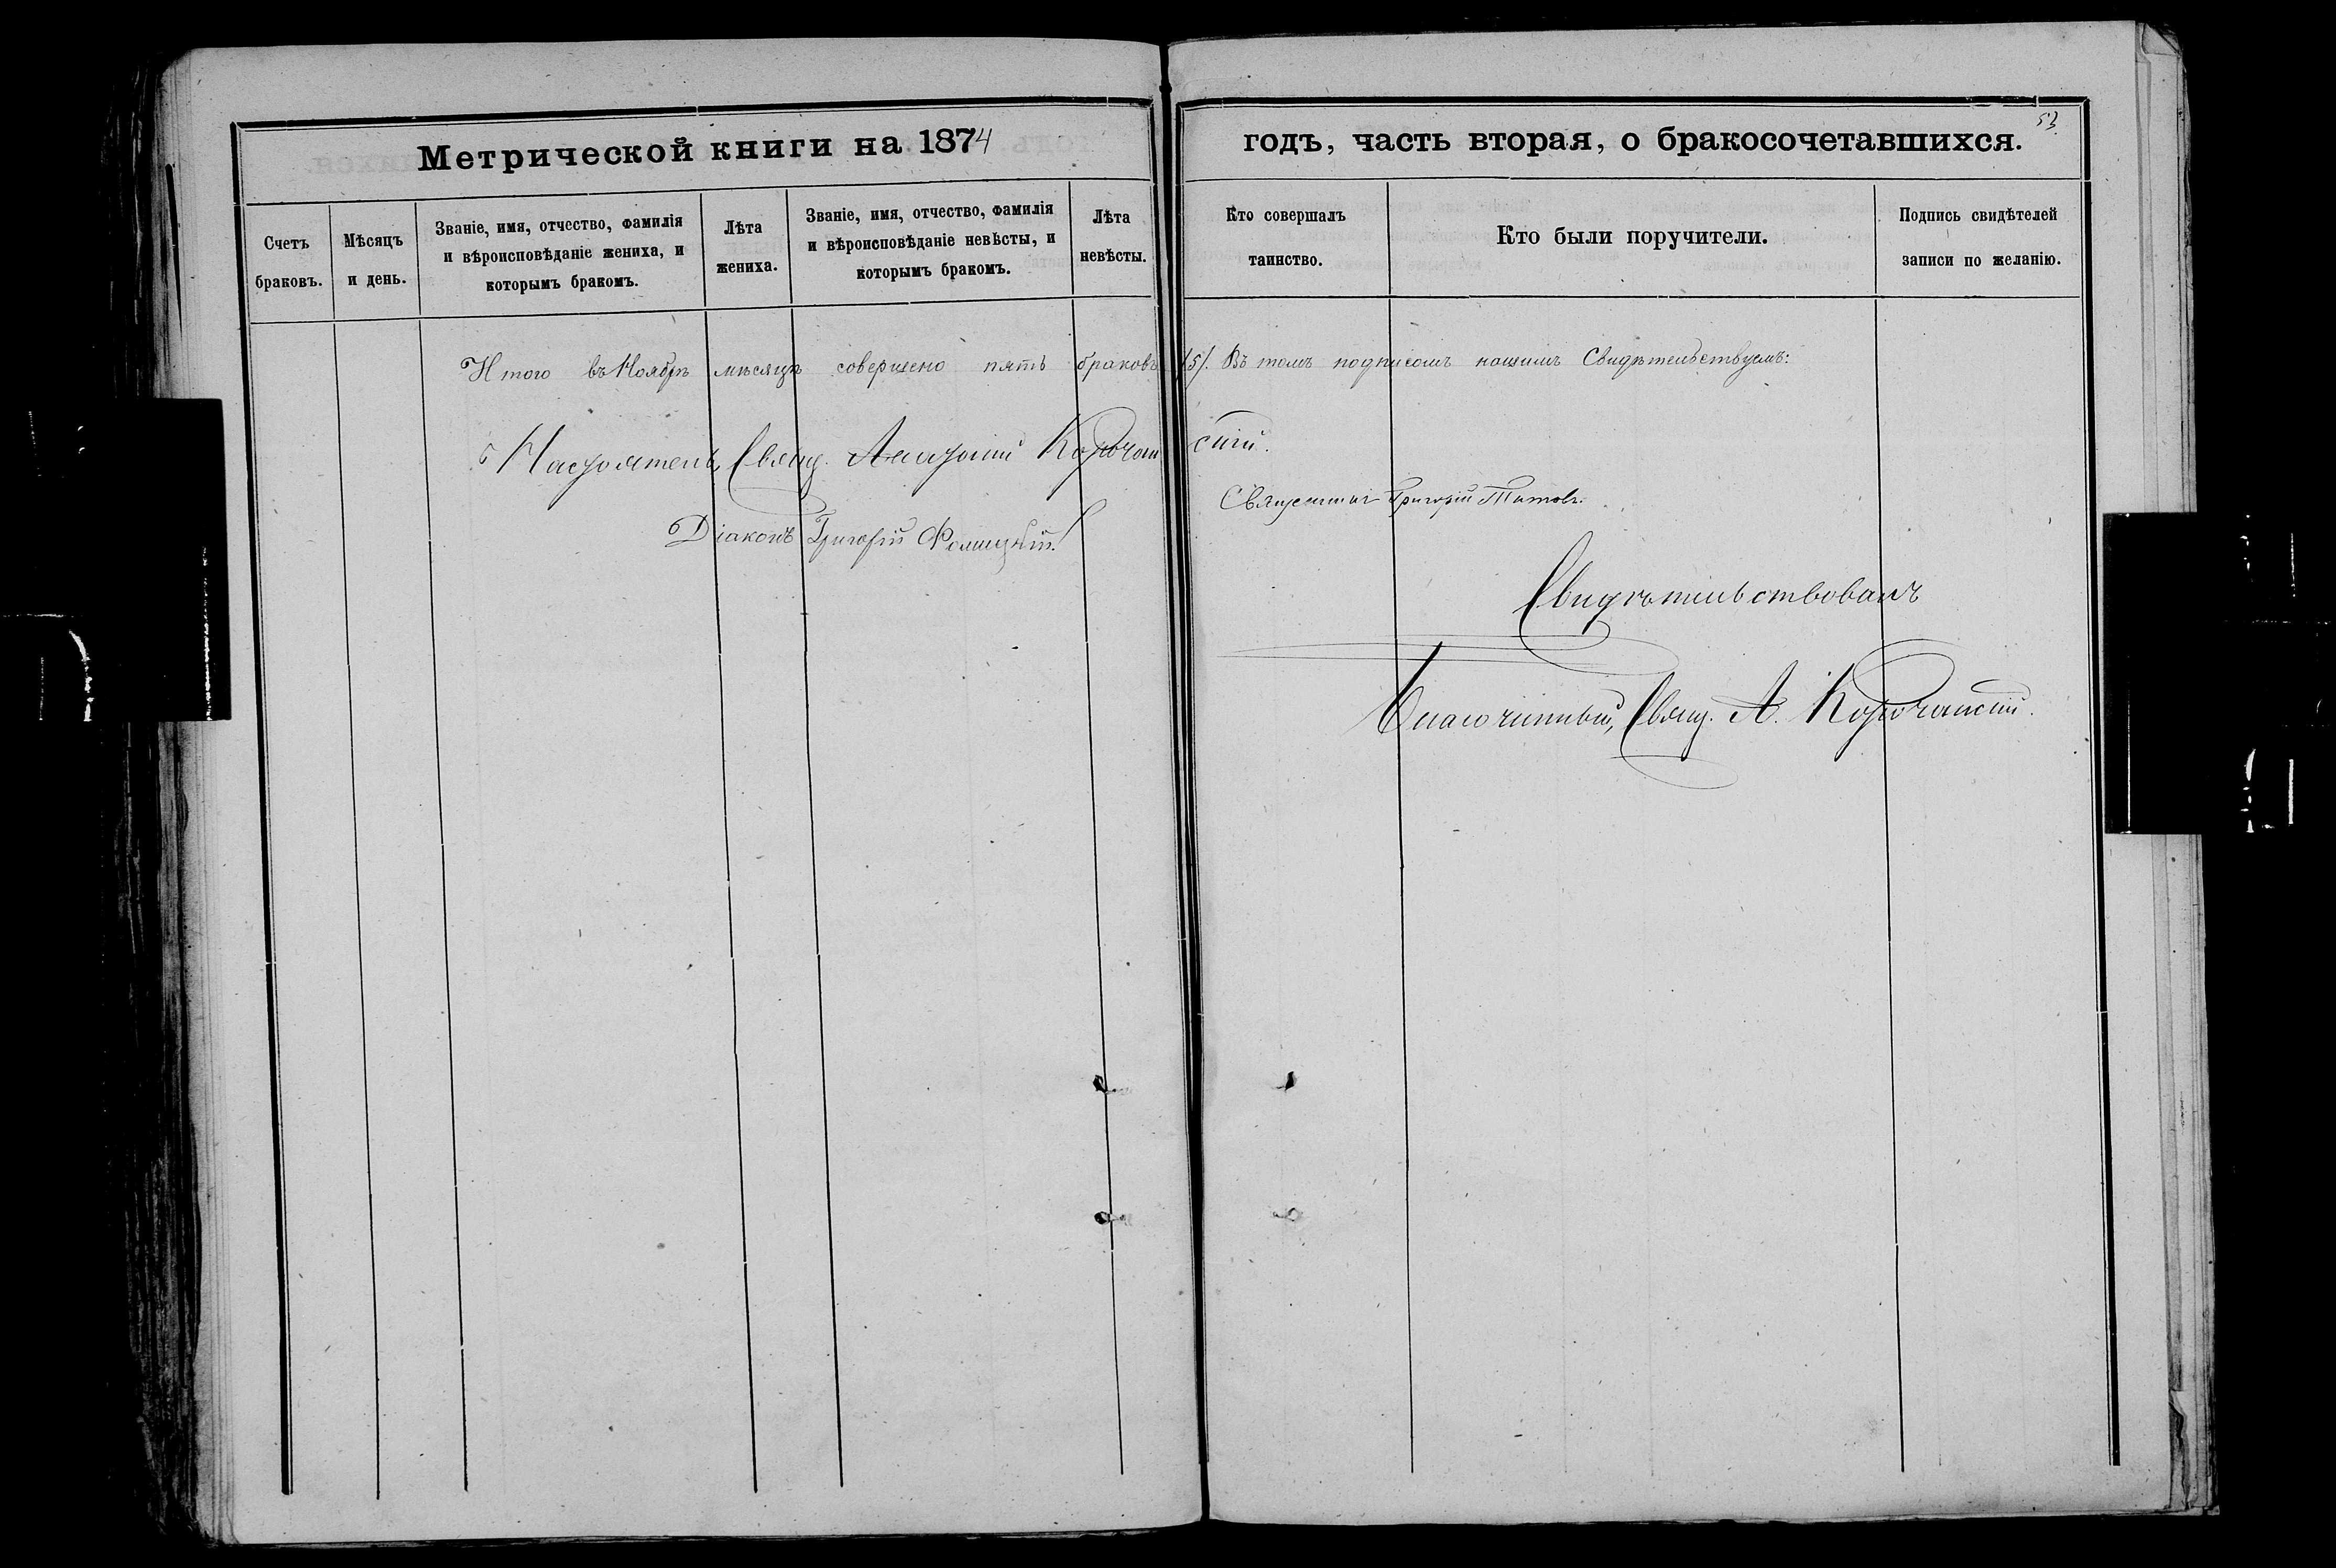 Метрической книги на 1874
годъ, часть вторая, о бракосочетавшихся.
53.
Счетъ
браковъ.
Мѣсяцъ
и день.
Званіе, имя, отчество, фамилія
и вѣроисповѣданіе жениха, и
которымъ бракомъ.
Лѣта
жениха.
Званіе, имя, отчество, фамилія
и вѣроисповѣданіе невѣсты, и
которымъ бракомъ.
Лѣта
невѣсты.
Кто совершалъ
таинство.
Кто были поручители.
Подпись свидѣтелей
записи по желанію.
Итого въ Ноябрѣ мѣсяцѣ совершено пять браковъ /5/. Въ томъ подписомъ нашимъ Свидѣтельствуемъ:
Настоятель, Свящ. Корочанскій.
Священникъ Григорій Титовъ.
Діаконъ Григорій
Свидѣтельствовалъ
Благочинный, Свящ. А. Корочанскій.